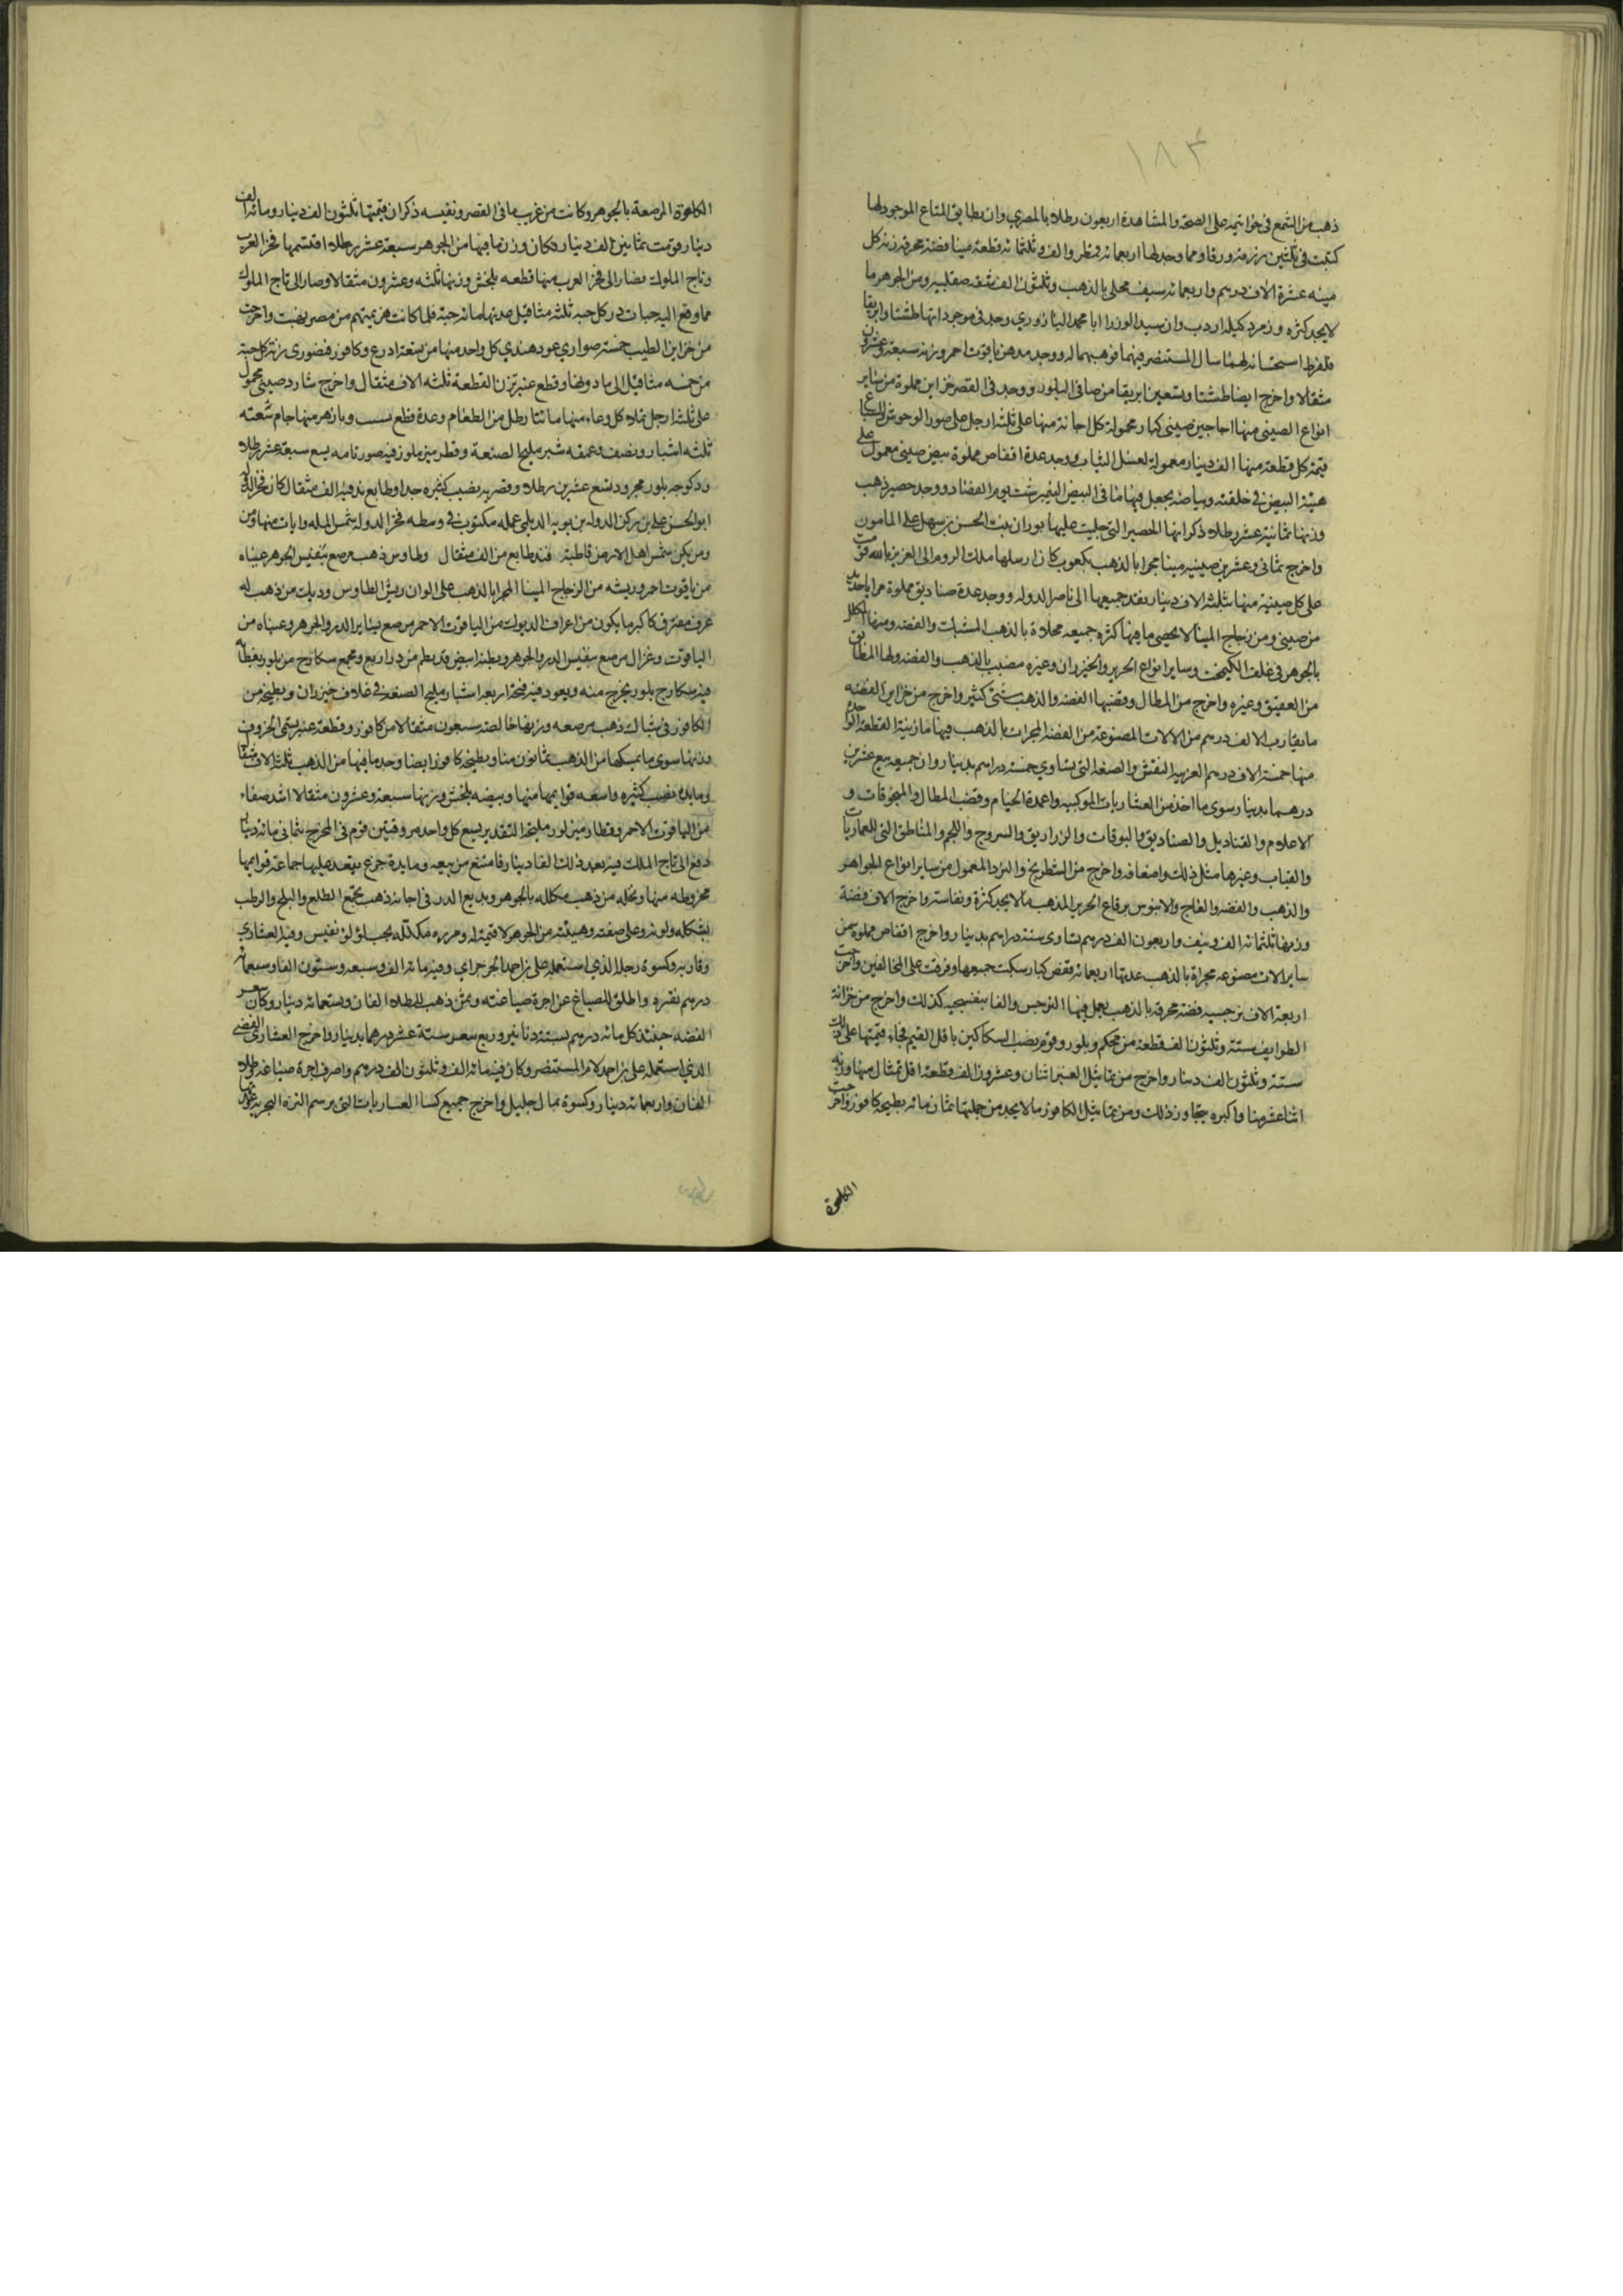 ١٨٣
ذهب من الشمع في خواتيمه على الصحة والمشاهدة اربعون رطلا بالمصري وان بطايق المتاع الموجود لها
كتبت في ثلثين رزمة ورقا ومما وجد لها اربعمائه قمطر والف وثلثمائه قطعة مينا فضة مخرقة زنة كل
مينه عشرة الاف درهم واربعمائه سيف محلى بالذهب وثلثون الف شقه صقليه ومن الجوهر ما
لا يحد كثره وزمرد كيله اردب وان سيد الوزرا ابا محمد اليازوري وجد في موجوداتها طشتا وابريقا
فلفرط استحسانه لهما سال المستنصر فيهما فوهبهما له ووجد مدهن ياقوت احمر وزنه سبعة وعشرون
مثقالا واخرج ايضا طشتا وتسعين ابريقا من صافي البلور ووجد في القصر خزاين مملوة من ساير
انواع الصيني منها اجاجين صيني كبار محمولة كل اجانة منها على ثلثه ارجل على صور الوحوش والسباع
قيمة كل قطعة منها الف دينار معمولة لغسل الثياب ووجد عدة اقفاص مملوة ببيض صيني معمول على
هيئة البيض في خلقته وبياضه يجعل فيها ما في البيض النيمرشت يوم الفصاد ووجد حصير ذهب
وزنها ثمانية عشر رطلا ذكر انها الحصير التي جليت عليها بوران بنت الحسن بن سهل على المامون
واخرج ثماني وعشرين صينيه مينا مجرا بالذهب بكعوب كان ارسلها ملك الروم الى العزيز بالله قومت
على كل صينية منها بثلثه الاف دينار نفذ جميعها الى ناصر الدوله ووجد عدة صناديق مملوة مرايا حديد
من صيني ومن زجاج المينا لا يحصى ما فيها كثره جميعه محلاة بالذهب المشبك والفضه ومنها المكلل
بالجوهر في غلف الكيمخت وساير انواع الحرير والخيزران وغيره مضبب بالذهب والفضه ولها المطابق
من العقيق وغيره واخرج من المظال وقضبها الفضه والذهب شئ كثير واخرج من خزاين الفضه
ما يقارب الالف درهم من الالات المصنوعة من الفضه المجراة بالذهب فيها ما زنة القطعة الواحدة
منها خمسة الاف درهم الغريبه النقش والصنعه التي تساوي خمسة دراهم بدينار وان جميعه بيع عشرين
درهما بدينار سوى ما اخذ من العشاريات الموكبيه واعمدة الخيام وقضب المظال والمنجوقات و
الاعلام والقناديل والصناديق والبوقات والزراريق والسروج واللجم والمناطق التي للعماريات
والقباب وغيرها مثل ذلك واضعافه واخرج من الشطرنج والنرد المعمول من ساير انواع الجواهر
والذهب والفضه والعاج والابنوس برقاع الحرير المذهب ما لا يحد كثرة ونفاسة واخرج الاف فضة
وزنها ثلثمائه الف ونيف واربعون الف درهم تساوى ستة دراهم بدينار واخرج اقفاص مملوه من
ساير الات مصنوعه مجراة بالذهب عدتها اربعمائه قفص كبار سكبت جميعها وفرقت على المخالفين واخرجت
اربعة الاف نرجسيه فضة محرقه بالذهب يعمل فيها النرجس والفا بنفسجيه كذلك واخرج من خزانة
الطرايف ستة وثلثون الف قطعة من محكم وبلور وقوم نصب السكاكين باقل القيم فجاءت قيمتها على ذلك
ستة وثلثون الف دينار واخرج من تماثيل العنبر اثنان وعشرون الف قطعة اقل تمثال منها وزنه
اثنا عشر منا واكبره يتجاوز ذلك ومن تماثيل الكافور ما لا يحد من جملتها ثمان مائه بطيخه كافور واخرجت
الكلوته
الكلوته المرصعة بالجوهر وكانت من غريب ما في القصر ونفيسه ذكر ان قيمتها ثلثون الف دينار ومائه الف
دينار قومت بثمانين الف دينار وكان وزن ما فيها من الجوهر سبعة عشر رطلا اقتسمها فخر العرب
وتاج الملوك فصار الى فخر العرب منها قطعه بلخش وزنها ثلثه وعشرون مثقالا وصار الى تاج الملوك
مما وقع اليه حبات در كل حبه ثلثه مثاقيل عدتها مائه حبة فلما كانت هزيمتهم من مصر نهبت واخرجت
من خزاين الطيب خمسة صواري عود هندي كل واحد منها من تسعة اذرع وكافور قنصوري زنة كل حبة
من خمسه مثاقيل الى ما دونها وقطع عنبر تزن القطعة ثلثه الاف مثقال واخرج متارد صيني محمول
على ثلثه ارجل تملاه كل وعاء منها مائتا رطل من الطعام وعدة قطع يشب وبازهر منها جام سعته
ثلثه اشبار ونصف وعمقه شبر مليح الصنعة وقطرميز بلور فيه صور نامه يسع سبعة عشر رطلا
ودكوجه بلور مجرود تسع عشرين رطلا وقصريه نصيب كثيره جدا وطابع ند فيه الف مثقال كان فخر الدوله
ابو الحسن على بن ركن الدوله بن بويه الديلمي عمله مكتوب في وسطه فخر الدوله شمس المله وابيات منها
ومن يكن شمس اهل الارض قاطبة فنده طابع من الف مثقال وطاوس ذهب مرصع بنفيس الجوهر عيناه
من ياقوت احمر وريشه من الزجاج المينا المجرا بالذهب على الوان ريش الطاوس وديك من ذهب له
عرف مفترق كاكبر ما يكون من اعراف الديوك من الياقوت الاحمر مرصع بساير الدر والجوهر وعيناه من
الياقوت وغزال مرصع بنفيس الدر والجوهر وبطنه ابيض قد نظم من در رايع ومجمع سكارج من بلور بغطائه
فيه سكارج بلور يخرج منه ويعود فيه فتحته اربعه اشبار مليح الصنعه في غلاف خيزران وبطيخه من
الكافور في شباك ذهب مرصعه وزنها خالصه سبعون مثقالا من كافور وقطعة عنبر تسمى الخروف
وزنها سوى ما يمسكها من الذهب ثمانون منا وبطيخه كافور ايضا وجد ما فيها من الذهب ثلثه الاف مثقال
ومايده نصيب كثيره واسعه قوايمها منها وبيضه بلخش وزنها سبعة وعشرون مثقالا اشد صفاء
من الياقوت الاحمر وقطارميز بلور مليحة التقدير يسع كل واحد مروقيتين قوم في المخرج بثماني مائه دينار
دفع الى تاج الملك فيه بعد ذلك الفا دينار فامتنع من بيعه ومايدة جزع يقعد عليها جماعة قوايمها
مخروطه منها ونخله من ذهب مكلله بالجوهر وبديع الدر في اجانه ذهب تجمع الطلع والبلح والرطب
بشكله ولونه وعلى صفته وهيئته من الجوهر لا قيمة له ومزيره مكلله بحب لولو نفيس وقيد العشاري
وقاربه وكسوة رحله الذي استعمله على بن احمد الجرجراي وفيه مائه الف وسبعه وستون الفا وسبعمائه
درهم نقره واطلق للصياغ عن اجرة صياغته وثمن ذهب لطلاه الفان وتسعمائه دينار وكان سعر
الفضه حينئذ كل مائه درهم بستة دنانير وربع سعر ستة عشر درهما بدينار واخرج العشاري الفضي
الذي استعمله على بن احمد لام المستنصر وكان فيه مائه الف وثلثون الف درهم واصرف اجرة صياغه وطلاه
الفان واربعمائه دينار وكسوة بمال جليل واخرج جميع كسا العشاريات التي برسم النزه البحريه